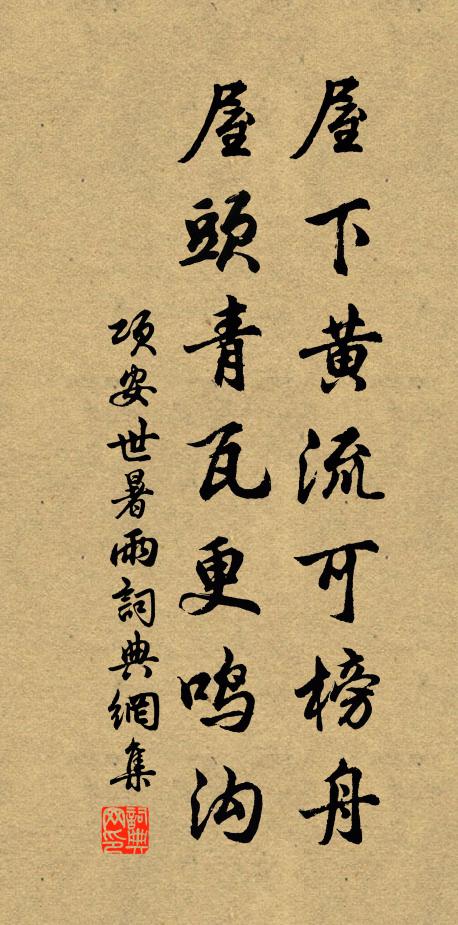 屋下黄流可榜舟
屋頭青瓦更鳴沟
项安世暑雨詞典網集
詞典网印